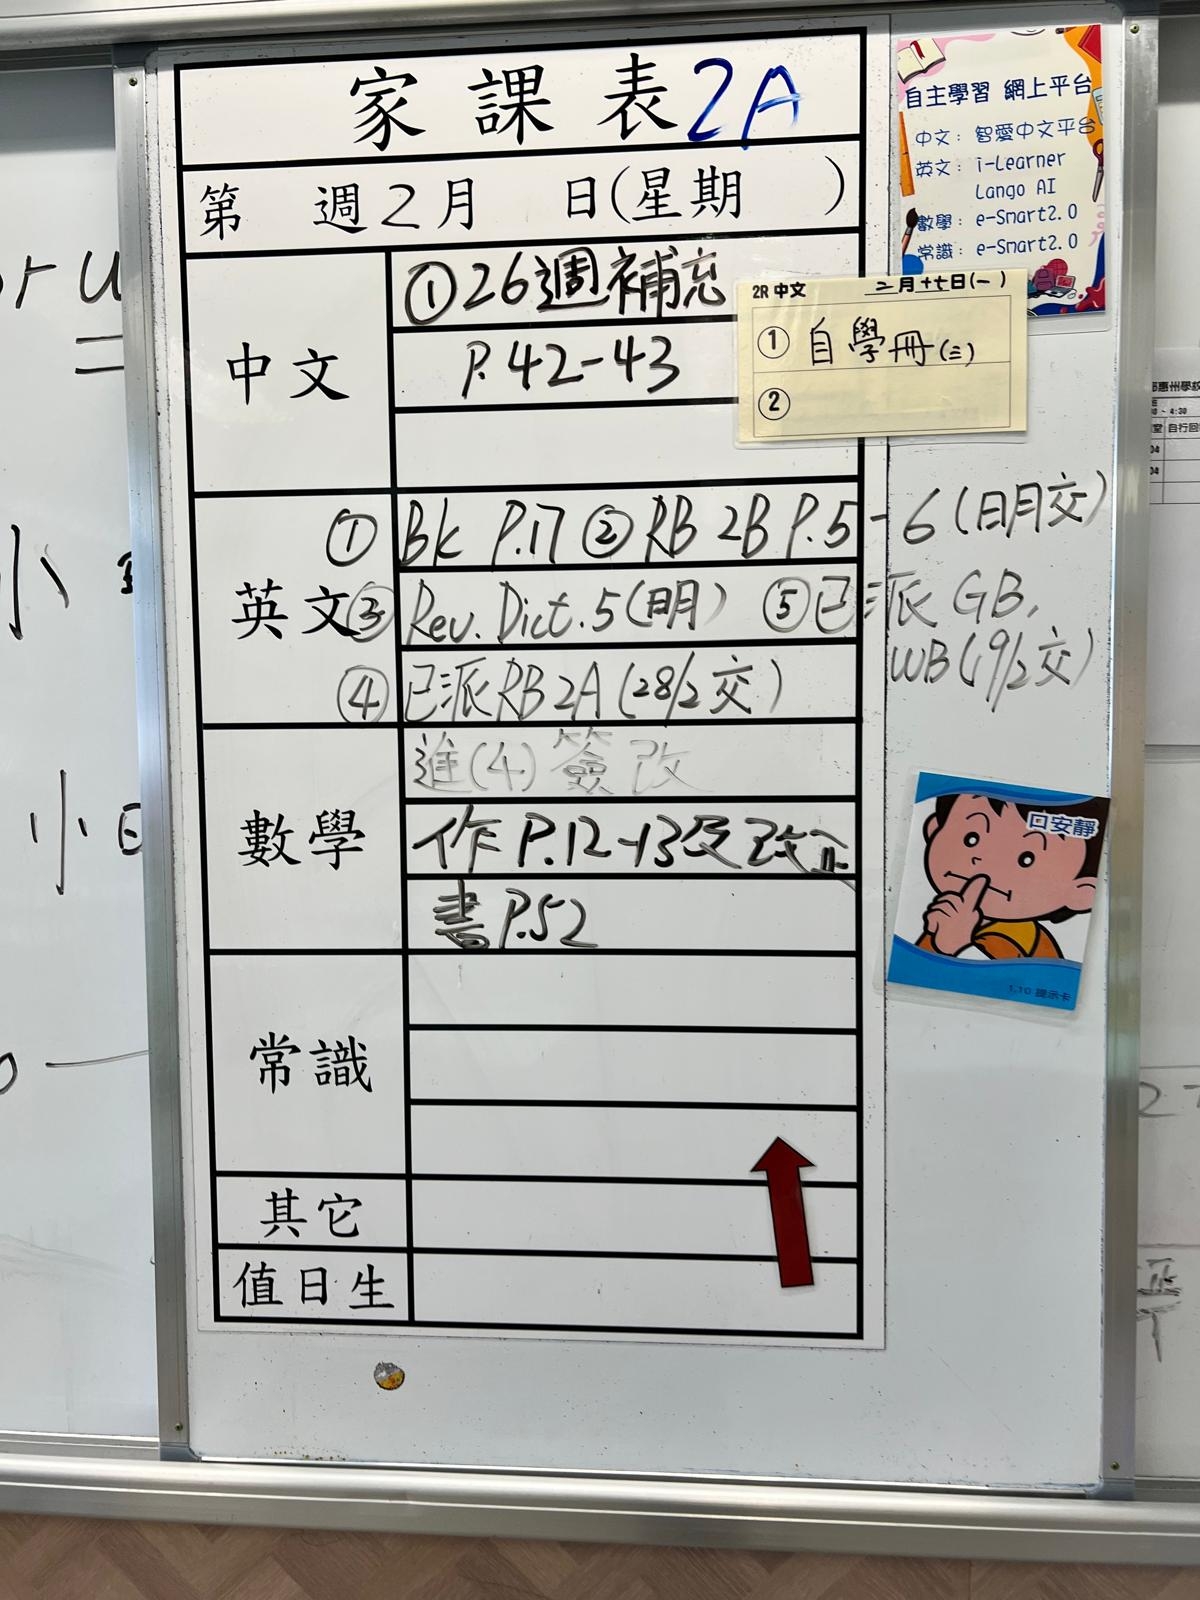 家課表 2A
第 週 2月 日(星期 )
中文
①26週補充
P.42-43
2R 中文 二月十七日(一)
① 自學冊(三)
②
英文
① Bk P.17 ② RB 2B P.5-6 (明交)
③ Rev. Dict. 5 (明) ⑤已派 GB,
WB (19/2交)
④ 已派RB 2A (28/2交)
數學
進(4) 簽改
作 P.12-13及改正
書 P.52
常識
其它
值日生
自主學習 網上平台
中文：智愛中文平台
英文：i-Learner
Lango AI
數學：e-Smart2.0
常識：e-Smart2.0
口安靜
1.10 提示卡
惠州學校
- 4:30
自行回
04
04
小
小